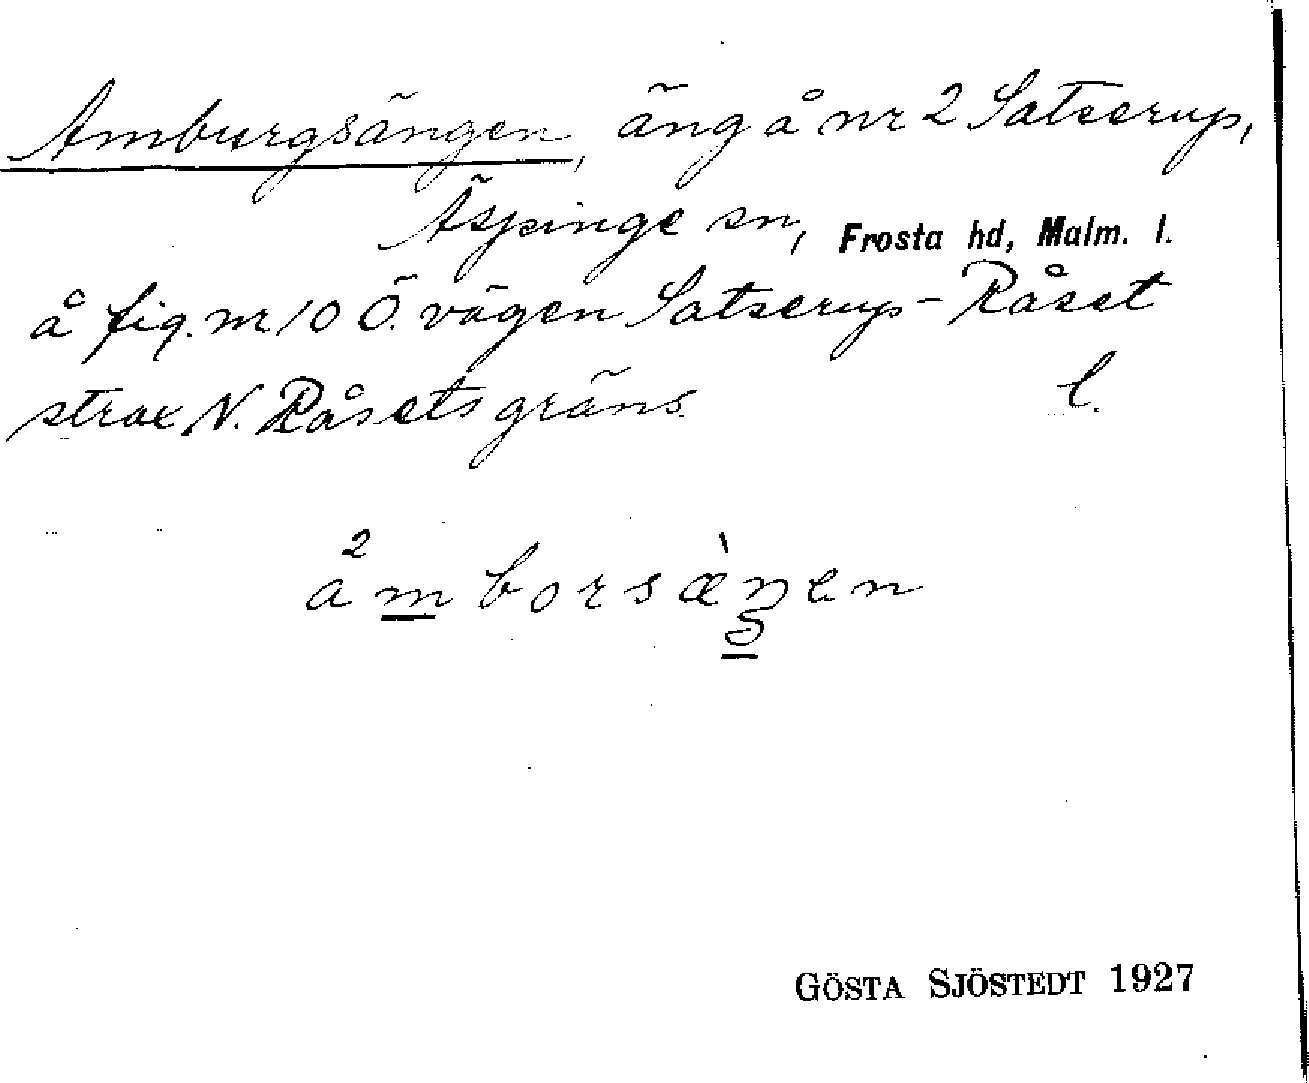 Amburgsängen, äng å nr 2 Satserup,
Äspinge sn, Frosta hd, Malm. l.
å fig. nr 10 Ö. vägen Satserup - Råset
strax N. Råsets gräns. l.
a²mborsæ̀ŋen
GÖSTA SJÖSTEDT 1927